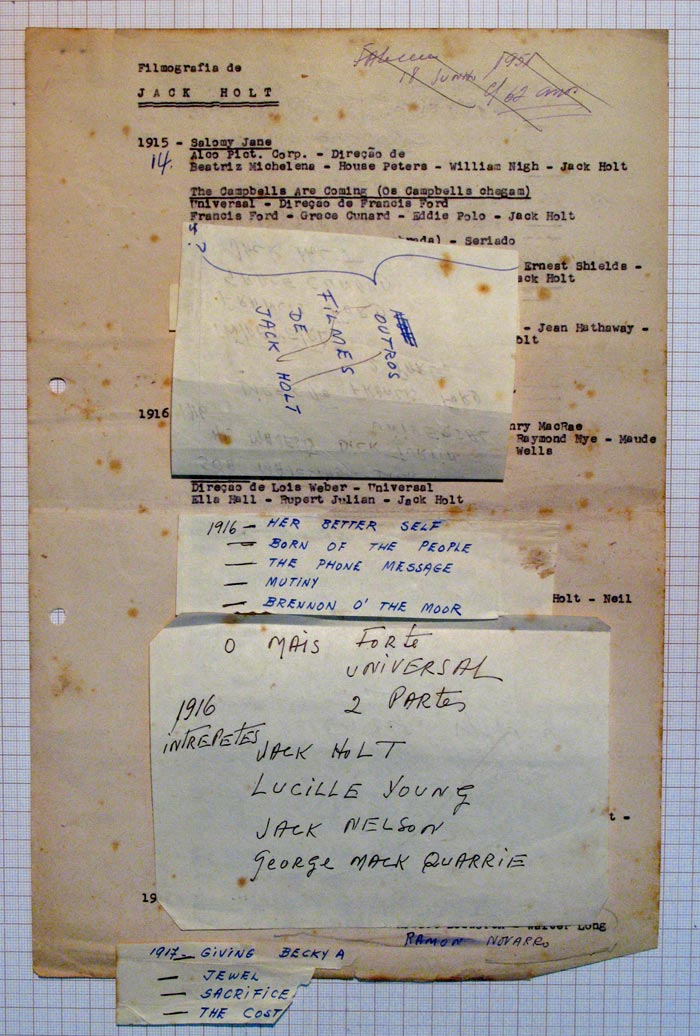 Filmografia de
JACK HOLT
18 JUNHO 1951
c/ 62 anos
1915 - Salomy Jane
14.
Alco Pict. Corp. - Direção de
Beatriz Michelena - House Peters - William Nigh - Jack Holt
The Campbells Are Coming (Os Campbells chegam)
Universal - Direção de Francis Ford
Francis Ford - Grace Cunard - Eddie Polo - Jack Holt
rada) - Seriado
Ernest Shields -
ack Holt
OUTROS
FILMES
DE
JACK HOLT
- Jean Hathaway -
olt
1916
nry MacRae
Raymond Nye - Maude
Wells
Direção de Lois Weber - Universal
Ella Hall - Rupert Julian - Jack Holt
1916 - HER BETTER SELF
- BORN OF THE PEOPLE
- THE PHONE MESSAGE
- MUTINY
- BRENNON O' THE MOOR
Holt - Neil
O MAIS FORTE
UNIVERSAL
2 PARTES
1916
INTREPETES
JACK HOLT
LUCILLE YOUNG
JACK NELSON
GEORGE MACK QUARRIE
t -
19
Walter Long
RAMON NOVARRO
1917 - GIVING BECKY A
- JEWEL
- SACRIFICE
- THE COST